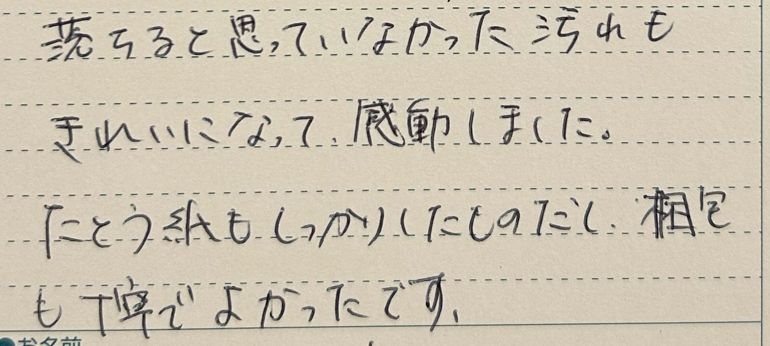 落ちると思っていなかった汚れも
きれいになって、感動しました。
たとう紙もしっかりしたものだし、梱包
も丁寧でよかったです。
●お名前